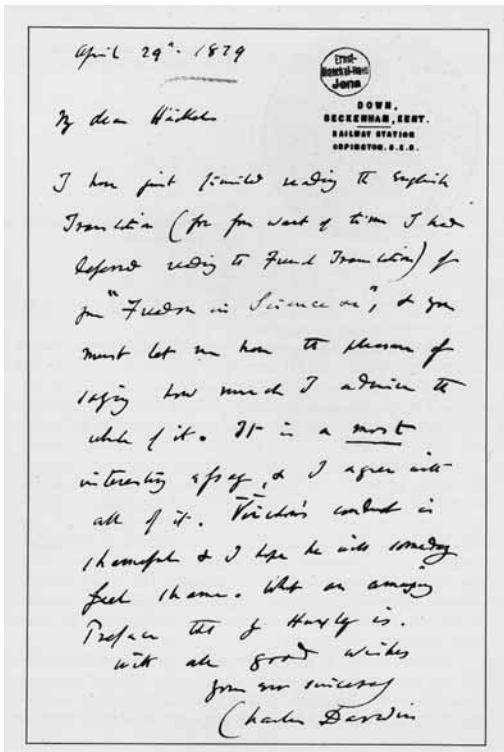 April 29th. 1879
Ernst-
Haeckel-Haus
Jena
DOWN,
BECKENHAM, KENT.
RAILWAY STATION
ORPINGTON. S.E.R.
My dear Häckel
I have just finished reading the English
Translation (for from want of time I had
deferred reading the French Translation) of
your "Freedom in Science &c", & you
must let me have the pleasure of
saying how much I admire the
whole of it. It is a most
interesting essay, & I agree with
all of it. Virchow's conduct is
shameful & I hope he will someday
feel shame. What an amusing
Preface that of Huxley is.
with all good wishes
yours ever sincerely
Charles Darwin